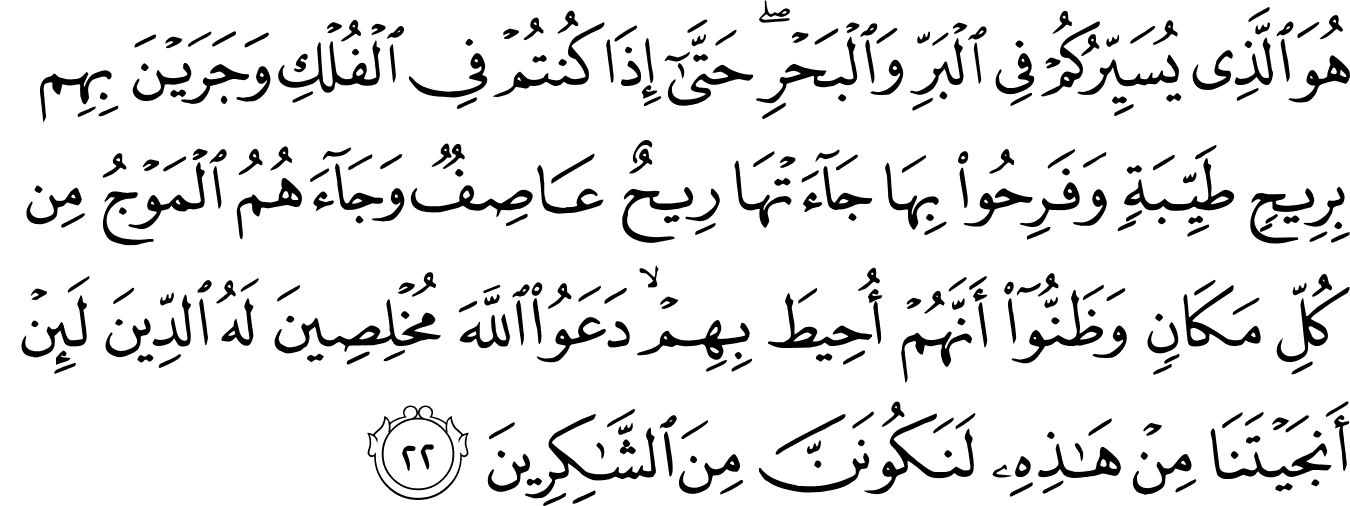 هُوَ ٱلَّذِى يُسَيِّرُكُمْ فِى ٱلْبَرِّ وَٱلْبَحْرِ ۖ حَتَّىٰٓ إِذَا كُنتُمْ فِى ٱلْفُلْكِ وَجَرَيْنَ بِهِم
بِرِيحٍ طَيِّبَةٍ وَفَرِحُوا۟ بِهَا جَآءَتْهَا رِيحٌ عَاصِفٌ وَجَآءَهُمُ ٱلْمَوْجُ مِن
كُلِّ مَكَانٍ وَظَنُّوٓا۟ أَنَّهُمْ أُحِيطَ بِهِمْ ۙ دَعَوُا۟ ٱللَّهَ مُخْلِصِينَ لَهُ ٱلدِّينَ لَئِنْ
أَنجَيْتَنَا مِنْ هَـٰذِهِۦ لَنَكُونَنَّ مِنَ ٱلشَّـٰكِرِينَ ٢٢